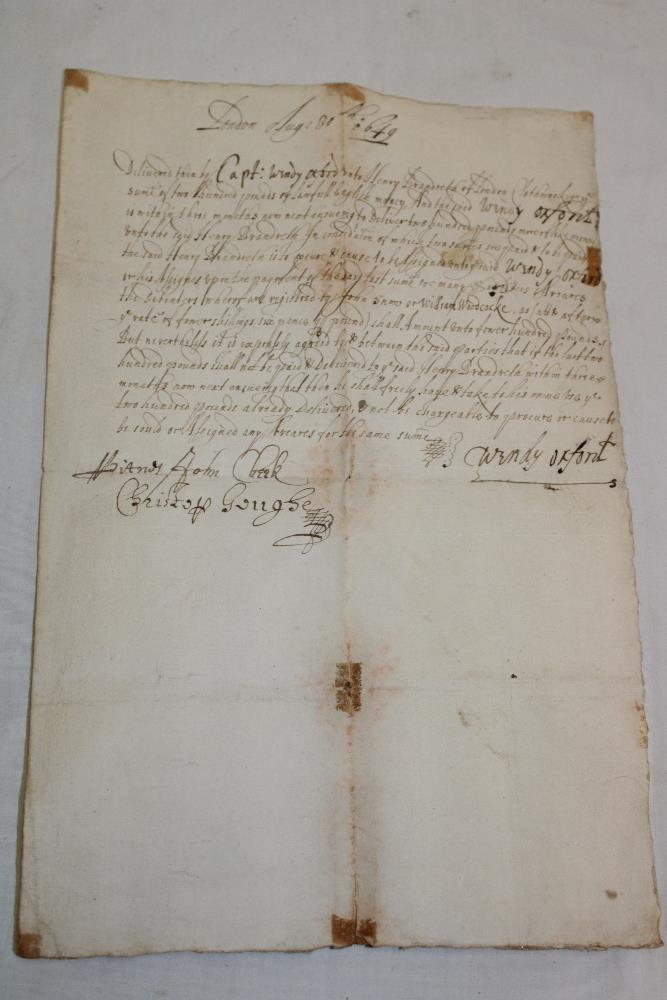 London Aug: 30th: 1649
Delivered then by Capt: Windy Oxford unto Henry Brandreth of London Clothworker ye
sume of two hundred pounds of lawfull English money And the said Windy Oxford
is within three months now next ensueing to deliver two hundred pounds more like money
unto the said Henry Brandreth In consideracon of which two sumes soe paid & to be paid
the said Henry Brandreth is to procure & cause to be Assigned unto ye said Windy Oxford
or his Assignes upon the payment of the said last sume soe many Souldiers Arreares
the Debenters whereof are registred by John Snow or William Widdcocke, as (att & after
ye rate of fower shillings six pence ye pound) shall Amount unto fower hundred pounds
But neverthelesse it is expressly agreed by & between the said parties that if the last two
hundred pounds shall not be paid & Delivered to ye said Henry Brandreth within three
moneths now next ensueing that then he shall freely have & take to his owne use ye
two hundred pounds already Delivered, & not be chargeable to procure or cause to
be sould or Assigned any Areares for the same sume
Witnes John Cheek
Windy Oxford
Christop Goughe